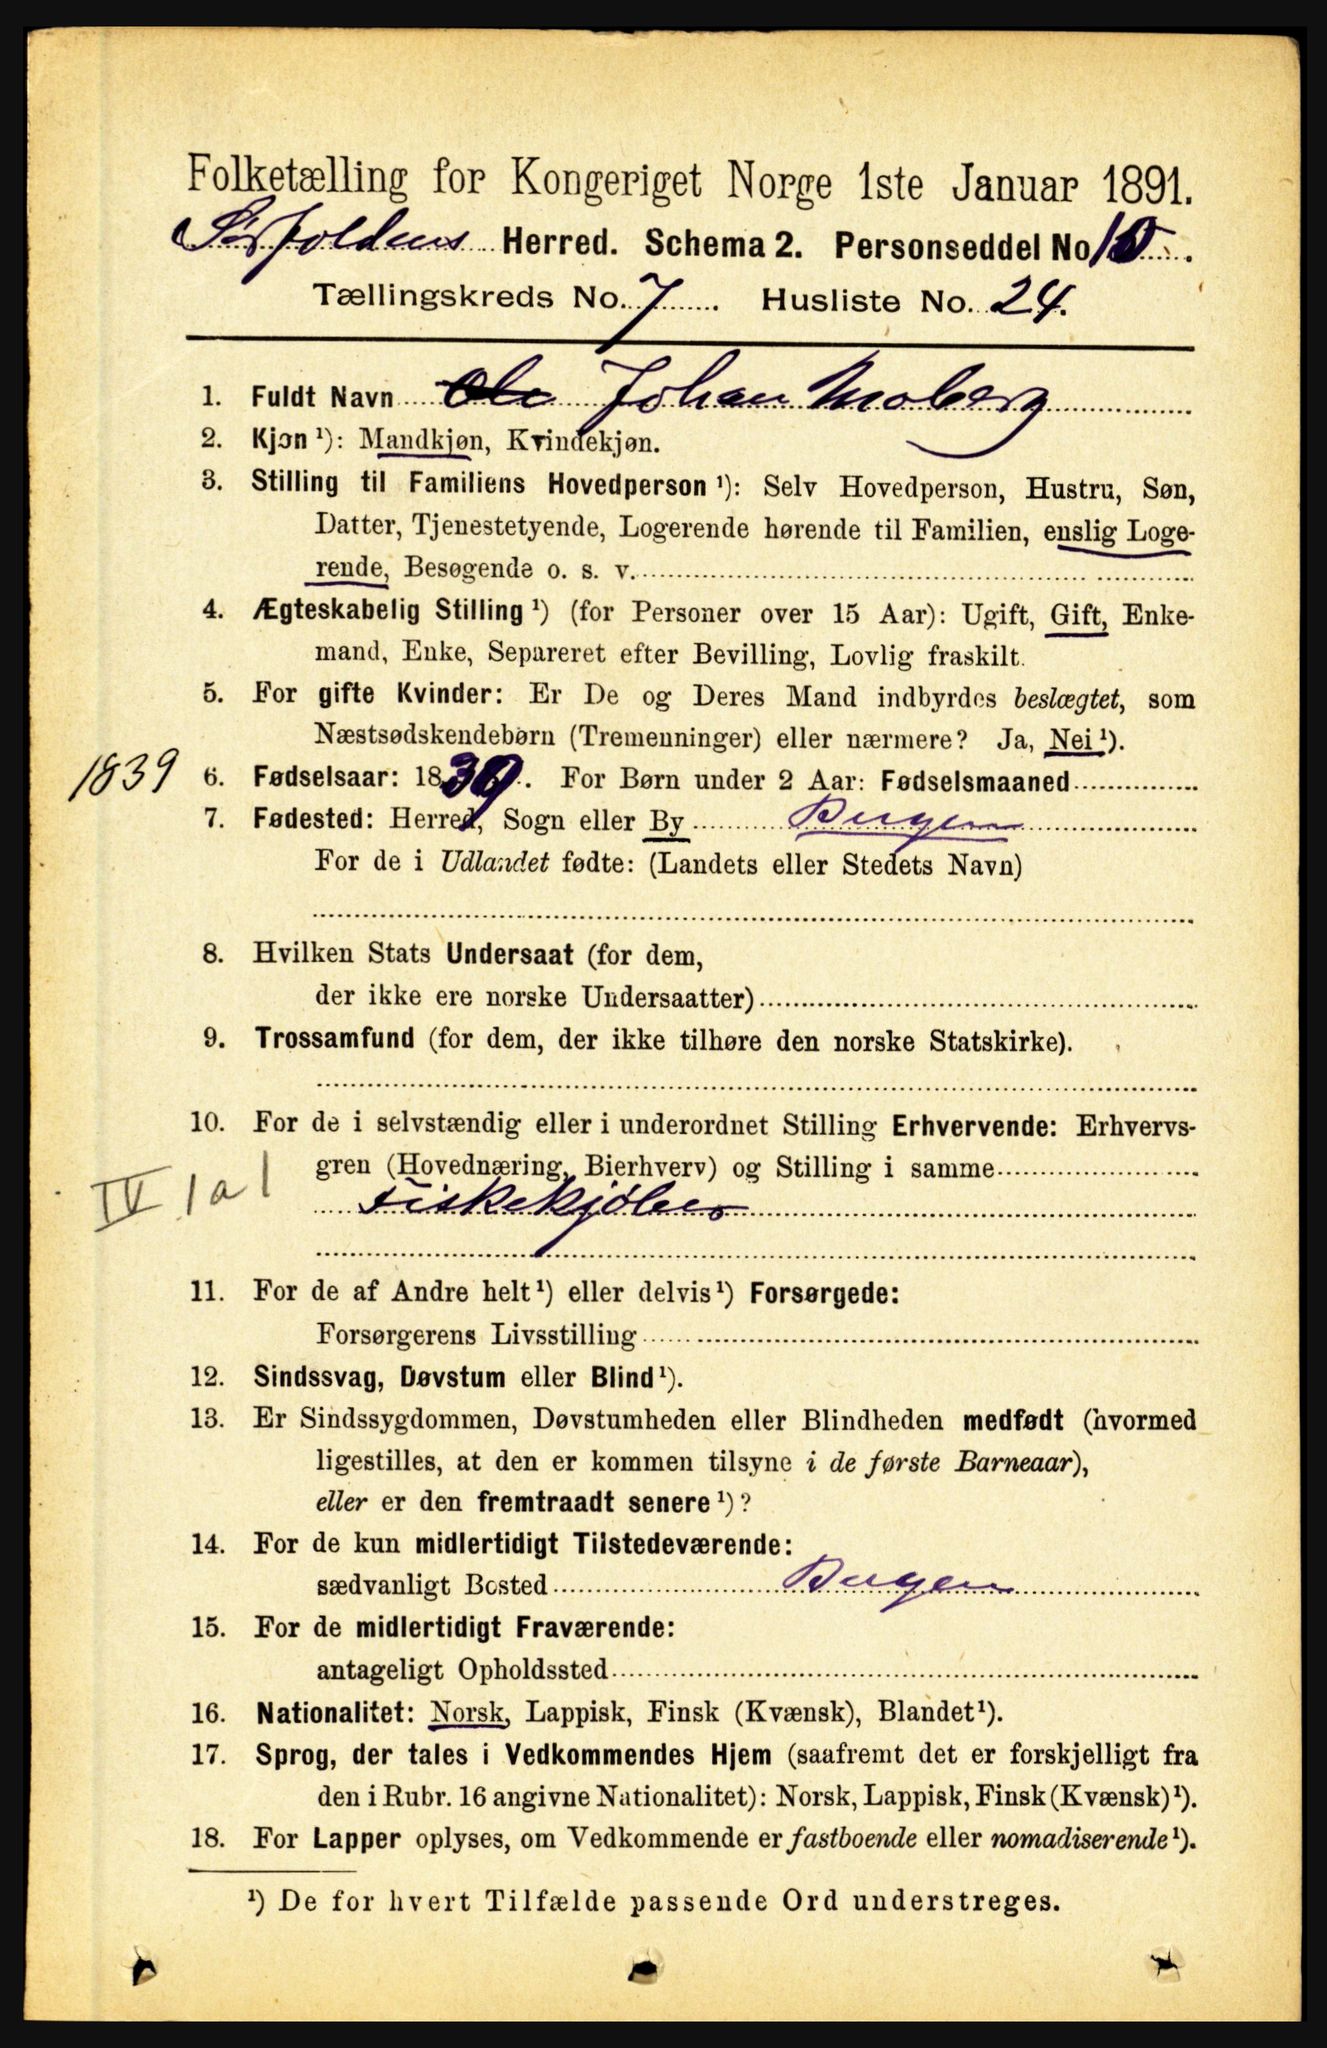 Folketælling for Kongeriget Norge 1ste Januar 1891.
Sørfoldens Herred. Schema 2. Personseddel No 10.
Tællingskreds No. 7. Husliste No. 24.
1. Fuldt Navn Ole Johan Moberg
2. Kjøn ¹): Mandkjøn, Kvindekjøn.
3. Stilling til Familiens Hovedperson ¹): Selv Hovedperson, Hustru, Søn,
Datter, Tjenestetyende, Logerende hørende til Familien, enslig Loge-
rende, Besøgende o. s. v.
4. Ægteskabelig Stilling ¹) (for Personer over 15 Aar): Ugift, Gift, Enke-
mand, Enke, Separeret efter Bevilling, Lovlig fraskilt.
5. For gifte Kvinder: Er De og Deres Mand indbyrdes beslægtet, som
Næstsødskendebørn (Tremenninger) eller nærmere? Ja, Nei ¹).
1839 6. Fødselsaar: 1839. For Børn under 2 Aar: Fødselsmaaned
7. Fødested: Herred, Sogn eller By Bergen
For de i Udlandet fødte: (Landets eller Stedets Navn)
8. Hvilken Stats Undersaat (for dem,
der ikke ere norske Undersaatter)
9. Trossamfund (for dem, der ikke tilhøre den norske Statskirke).
10. For de i selvstændig eller i underordnet Stilling Erhvervende: Erhvervs-
gren (Hovednæring, Bierhverv) og Stilling i samme
IV 1a1 Fiskekjøber
11. For de af Andre helt ¹) eller delvis ¹) Forsørgede:
Forsørgerens Livsstilling
12. Sindssvag, Døvstum eller Blind ¹).
13. Er Sindssygdommen, Døvstumheden eller Blindheden medfødt (hvormed
ligestilles, at den er kommen tilsyne i de første Barneaar),
eller er den fremtraadt senere ¹)?
14. For de kun midlertidigt Tilstedeværende:
sædvanligt Bosted Bergen
15. For de midlertidigt Fraværende:
antageligt Opholdssted
16. Nationalitet: Norsk, Lappisk, Finsk (Kvænsk), Blandet ¹).
17. Sprog, der tales i Vedkommendes Hjem (saafremt det er forskjelligt fra
den i Rubr. 16 angivne Nationalitet): Norsk, Lappisk, Finsk (Kvænsk) ¹).
18. For Lapper oplyses, om Vedkommende er fastboende eller nomadiserende ¹).
¹) De for hvert Tilfælde passende Ord understreges.